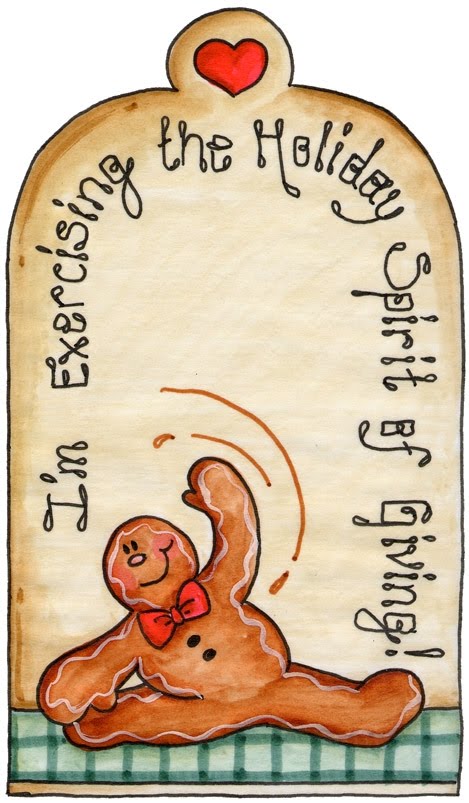 I'm Exercising the Holiday Spirit of Giving!